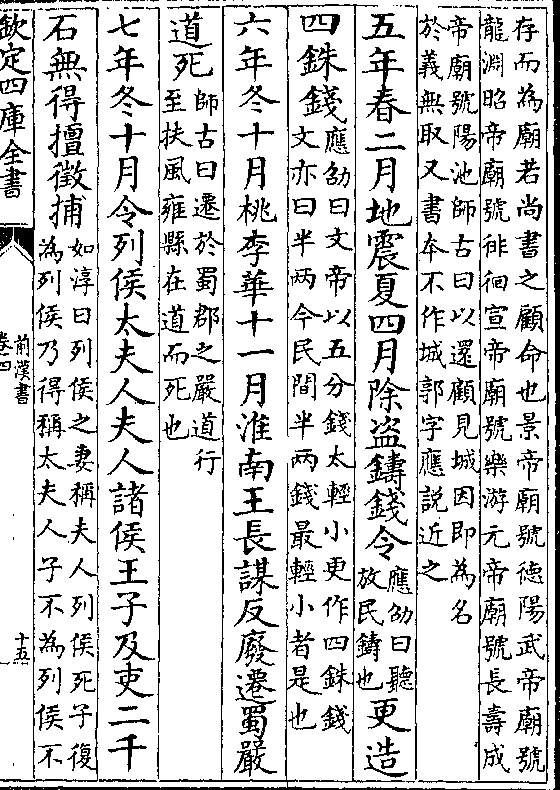 存而為廟若尚書之顧命也景帝廟號德陽武帝廟號
龍淵昭帝廟號徘徊宣帝廟號樂游元帝廟號長壽成
帝廟號陽池師古曰以還顧見城因即為名
於義無取又書本不作城郭字應説近之
五年春二月地震夏四月除盗鑄錢令應劭曰聽放民鑄也更造
四銖錢應劭曰文帝以五分錢太輕小更作四銖錢文亦曰半兩今民間半兩錢最輕小者是也
六年冬十月桃李華十一月淮南王長謀反廢遷蜀嚴
道死師古曰遷於蜀郡之嚴道行至扶風雍縣在道而死也
七年冬十月令列侯太夫人夫人諸侯王子及吏二千
石無得擅徵捕如淳曰列侯之妻稱夫人列侯死子復為列侯乃得稱太夫人子不為列侯不
欽定四庫全書
前漢書
卷四
十五